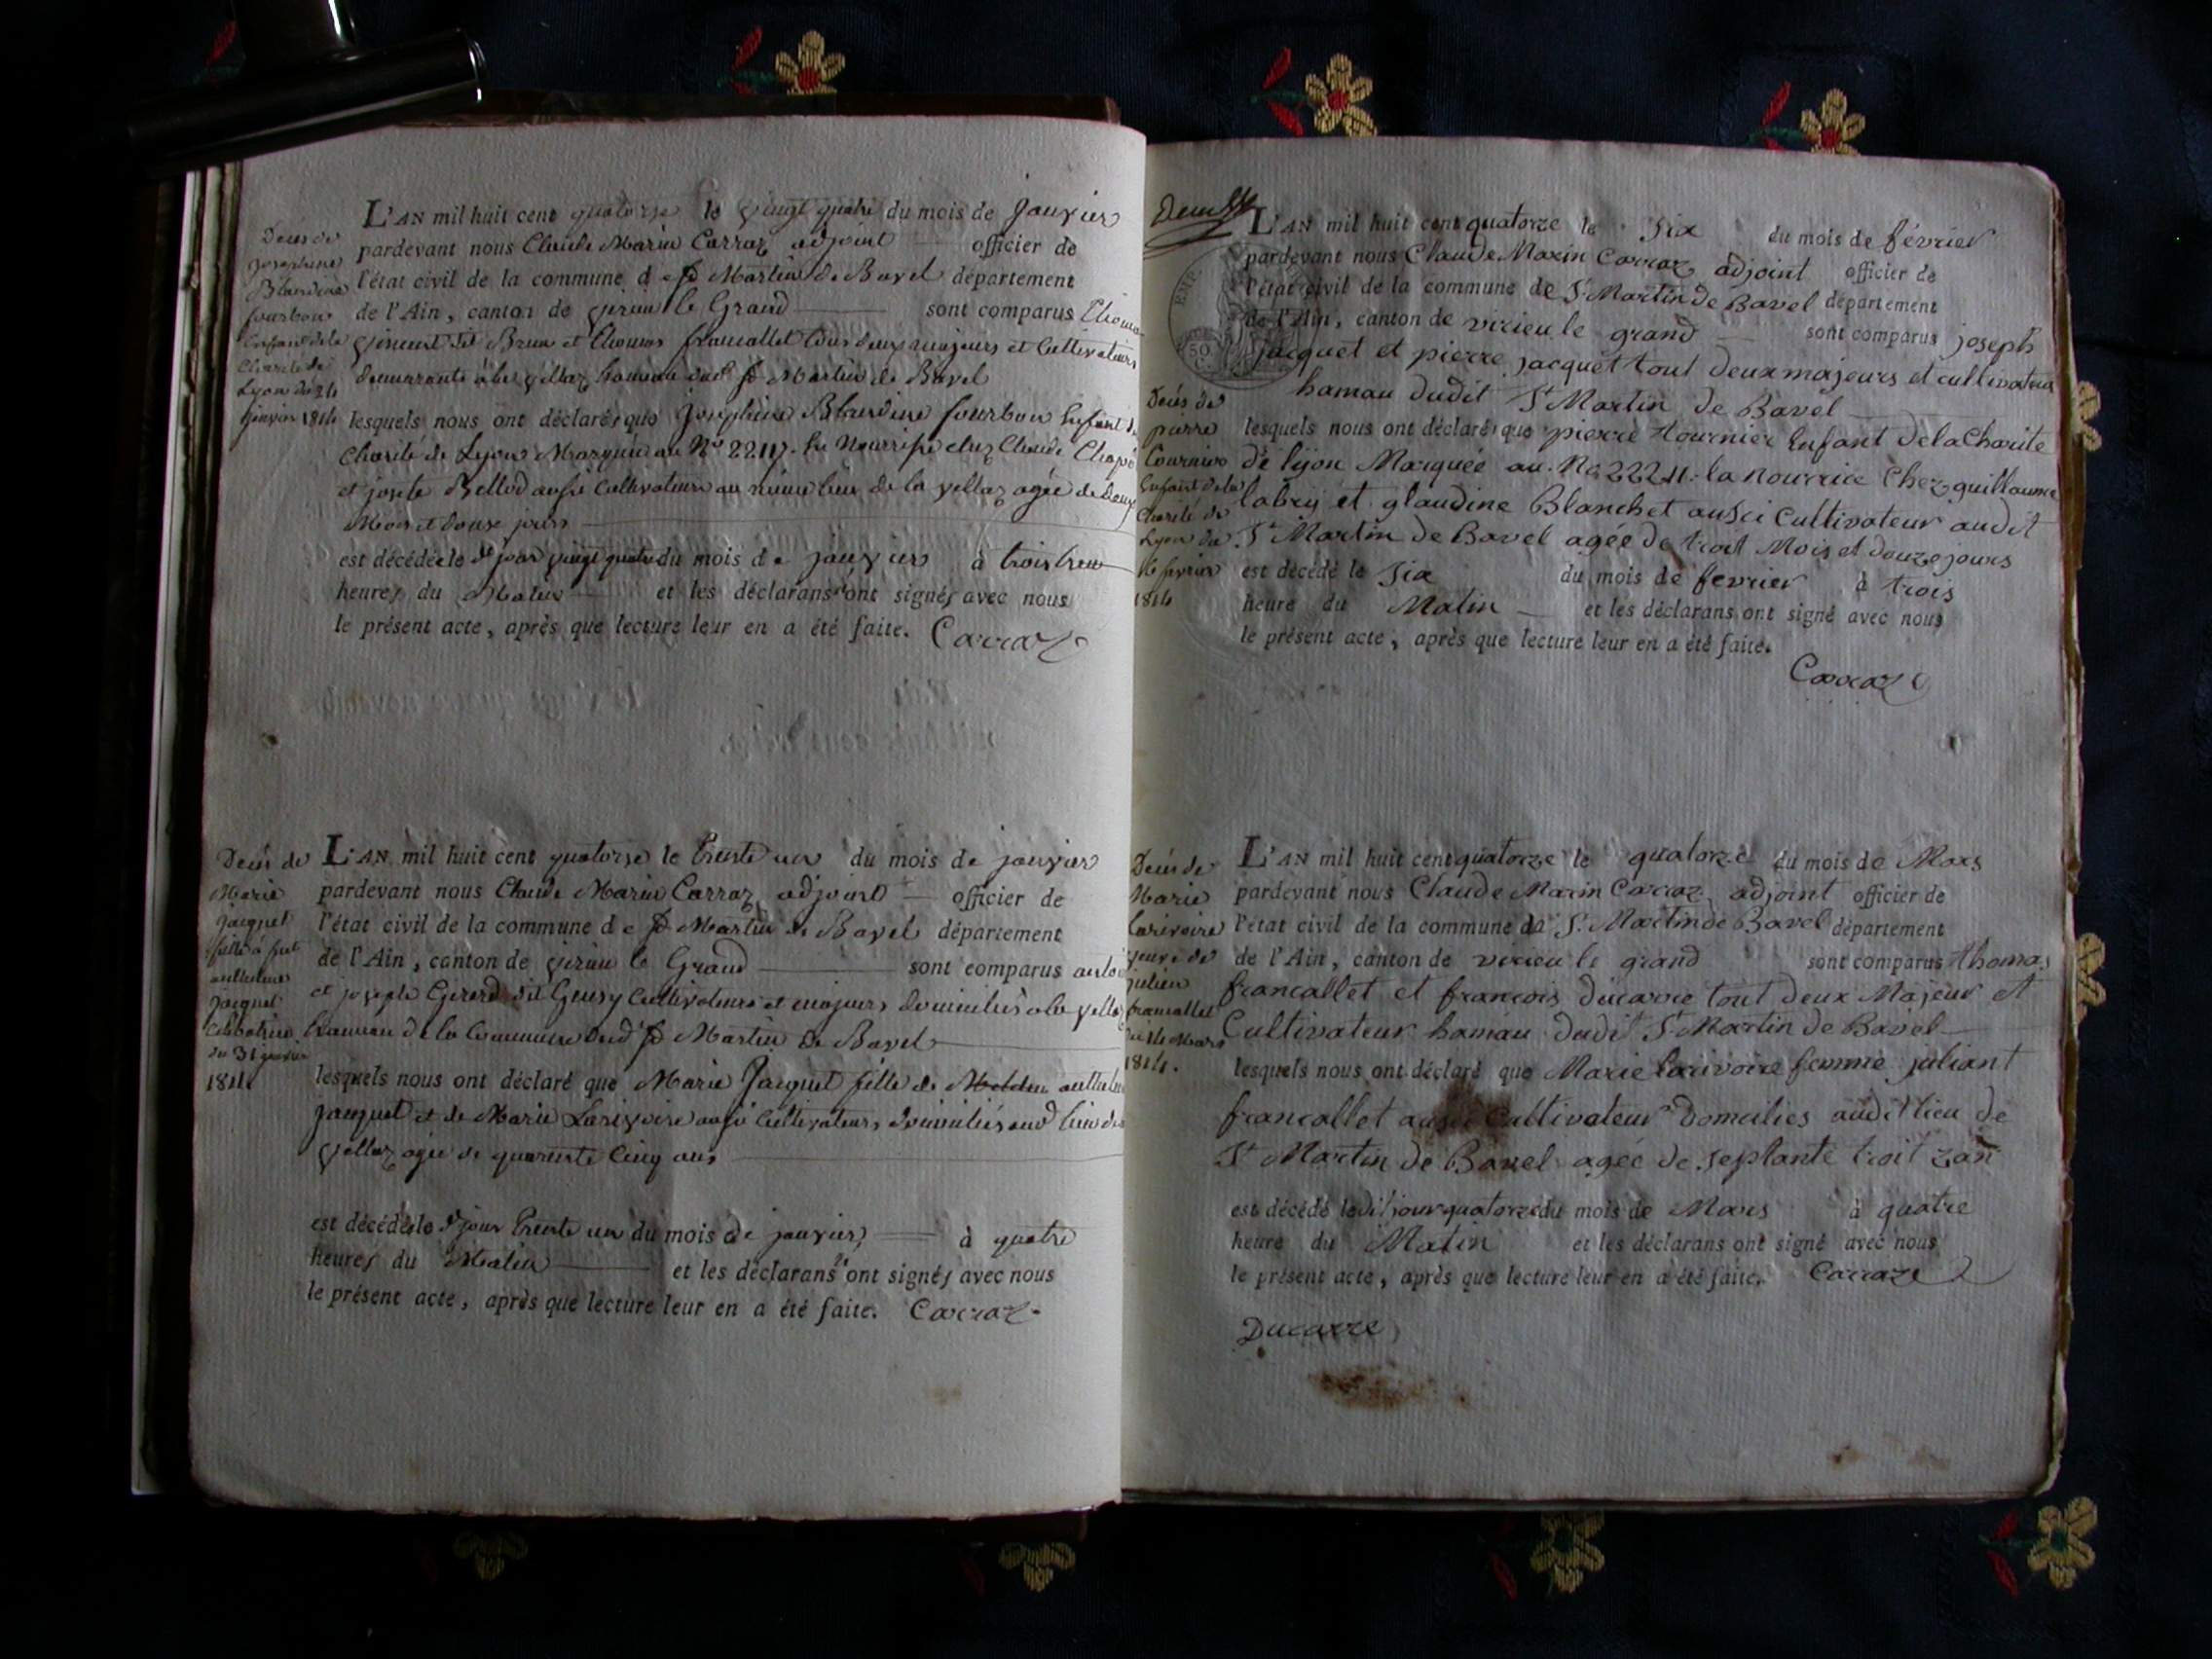 Décès de
Josephine
Blandine
fourbon
Enfant de la
Charité de
Lyon du 24
janvier 1814
L'AN mil huit cent quatorze le vingt quatre du mois de janvier
pardevant nous Claude Marin Carraz adjoint officier de
l'état civil de la commune de St Martin de Bavel département
de l'Ain, canton de virieu le Grand sont comparus Thomas
vincent dit Brun et Thomas francallet tous deux majeurs et Cultivateurs
demeurants à la vellaz hameau dud St Martin de Bavel
lesquels nous ont déclarés que Josephine Blandine fourbon Enfant de
Charité de Lyon Marquée au No la Nourrisse chez Claude
et josete Bellod aussi Cultivateurs au même lieu de la vellaz agée de Deux
Mois et douze jours
est décédée le dt jour vingt quatre du mois de janvier à trois
heures du Matin et les déclarans nt ont signés avec nous
le présent acte, après que lecture leur en a été faite. Carraz
Décès de
Marie
Jacquet
fille à feu
anthelme
Jacquet
Celibataire
du 31 janvier
1814
L'AN mil huit cent quatorze le trente un du mois de janvier
pardevant nous Claude Marin Carraz adjoint officier de
l'état civil de la commune de St Martin de Bavel département
de l'Ain, canton de virieu le Grand sont comparus
et joseph Gerard dit Geusy Cultivateurs et majeurs domiciliés à la vellaz
hameau de la Commune dud St Martin de Bavel
lesquels nous ont déclaré que Marie Jacquet fille de anthelme
jacquet et de Marie Larivoire aussi Cultivateurs domiciliés aud lieu de
vellaz agée de quarente Cinq ans
est décédée le dt jour trente un du mois de janvier à quatre
heures du Matin et les déclarans nt ont signés avec nous
le présent acte, après que lecture leur en a été faite. Carraz
EMP.
50
C.
Décès de
pierre
tournier
Enfant de la
Charité de
Lyon du
6 fevrier
1814
L'AN mil huit cent quatorze le six du mois de février
pardevant nous Claude Marin Carraz adjoint officier de
l'état civil de la commune de St Martin de Bavel département
de l'Ain, canton de virieu le grand sont comparus joseph
jacquet et pierre jacquet tout deux majeurs et cultivateur
hamau dudit St Martin de Bavel
lesquels nous ont déclaré que pierre tournier Enfant de la Charite
de lijon Marquée au No la nourrice Chez guillaume
labry et glaudine Blanchet aussi Cultivateur audit
St Martin de Bavel agée de troit Mois et douze jours
est décédé le six du mois de fevrier à trois
heure du Matin et les déclarans ont signé avec nous
le présent acte, après que lecture leur en a été faite.
Carraz
Décès de
Marie
larivoire
veuve de
julien
francallet
du 14 Mars
1814.
L'AN mil huit cent quatorze le quatorze du mois de Mars
pardevant nous Claude Marin Carraz adjoint officier de
l'état civil de la commune de St Martin de Bavel département
de l'Ain, canton de virieu le grand sont comparus thomas
francallet et francois ducarre tout deux Majeur et
Cultivateur hamau dudit St Martin de Bavel
lesquels nous ont déclaré que Marie larivoire femme juliant
francallet aussi Cultivateur domcilies audit lieu de
St Martin de Bavel agée de septante troit zan
est décédé ledit jour quatorze du mois de Mars à quatre
heure du Matin et les déclarans ont signé avec nous
le présent acte, après que lecture leur en a été faite. Carraz
Ducarre